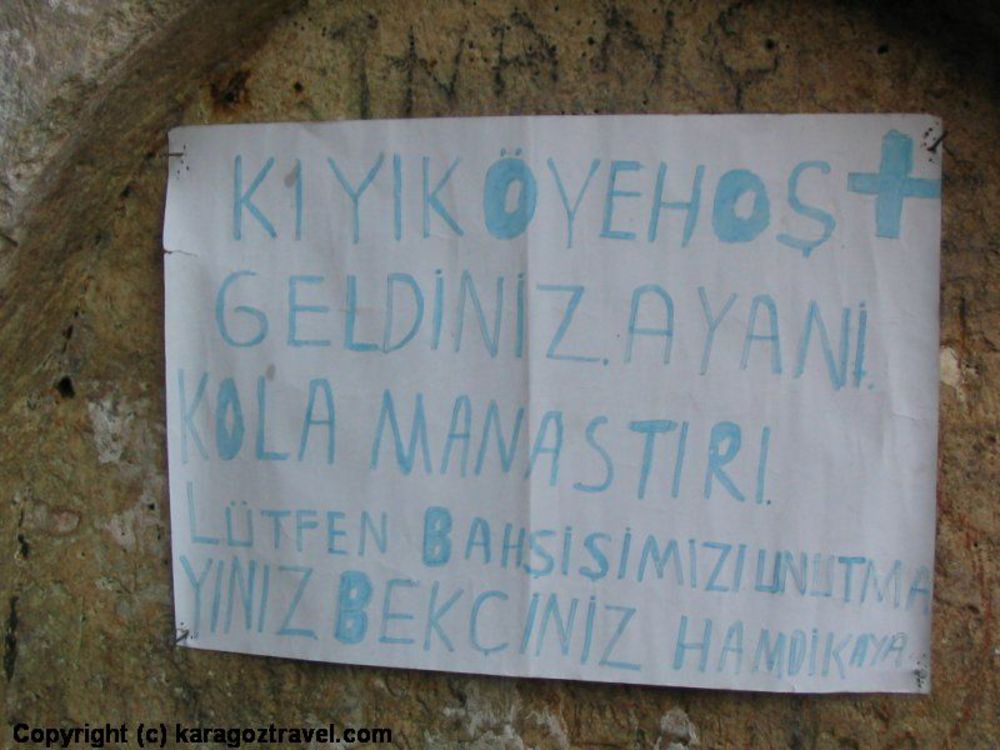 İNANÇ
KIYIKÖYEHOŞ
GELDİNİZ. AYANİ.
KOLA MANASTIRI.
LÜTFEN BAHŞİŞİMİZİ UNUTMA
YINIZ BEKÇİNİZ HAMDİ KAYA.
Copyright (c) karagoztravel.com